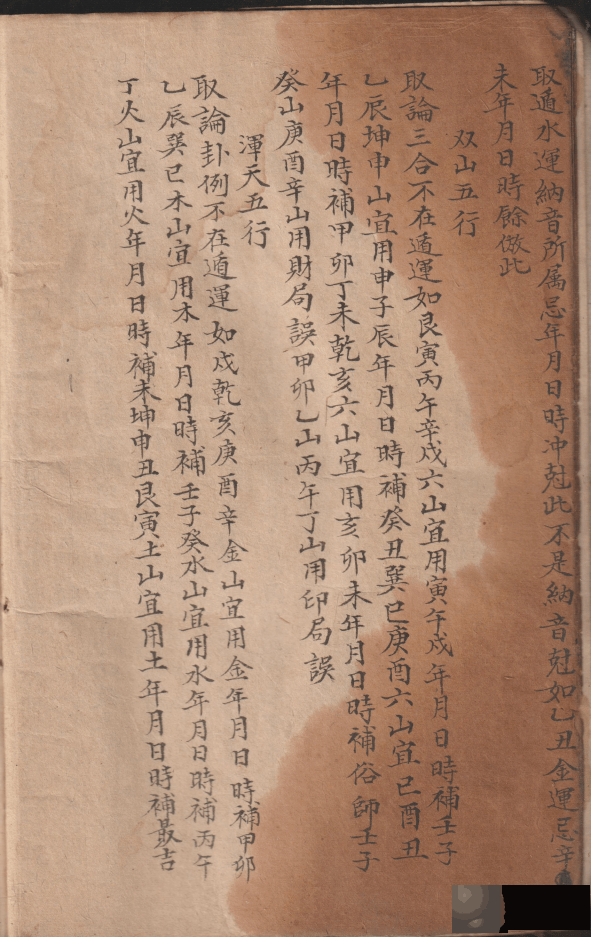 取遁水運納音所属忌年月日時冲尅此不是納音尅如乙丑金運忌辛
未年月日時餘倣此
双山五行
取論三合不在遁運如艮寅丙午辛戍六山宜用寅午戍年月日時補壬子
乙辰坤申山宜用申子辰年月日時補癸丑巽巳庚酉六山宜巳酉丑
年月日時補甲卯丁未乾亥六山宜用亥卯未年月日時補俗師壬子
癸山庚酉辛山用財局誤甲卯乙山丙午丁山用印局誤
渾天五行
取論卦例不在遁運如戍乾亥庚酉辛金山宜用金年月日時補甲卯
乙辰巽巳木山宜用木年月日時補壬子癸水山宜用水年月日時補丙午
丁火山宜用火年月日時補未坤申丑艮寅土山宜用土年月日時補最吉